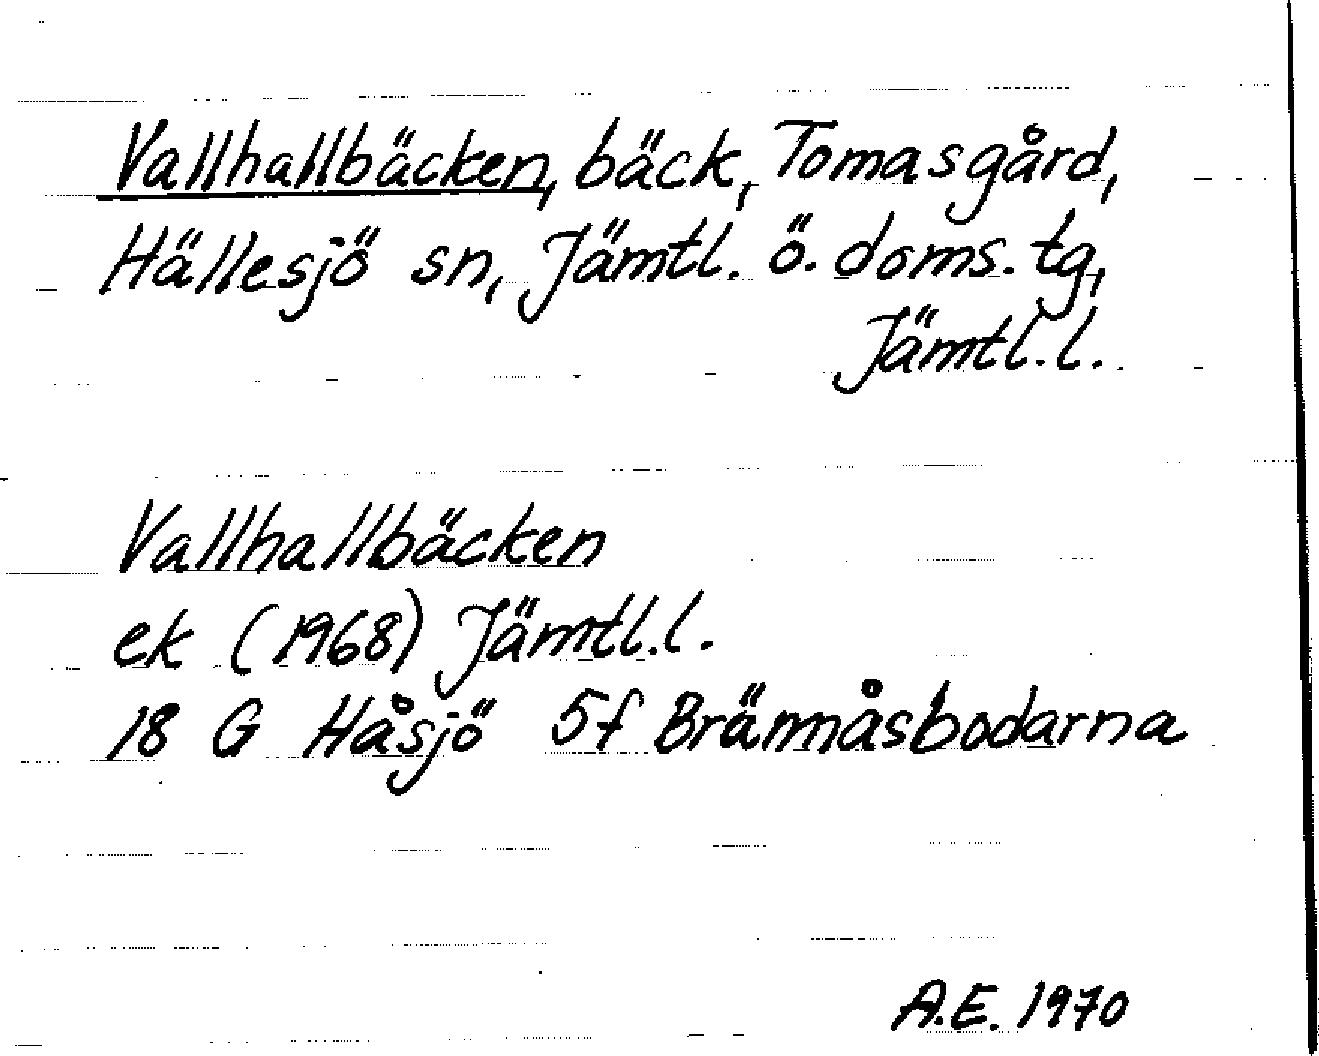 Vallhallbäcken, bäck, Tomasgård,
Hällesjö sn, Jämtl. ö. doms. tg,
Jämtl. l.
Vallhallbäcken
ek (1968) Jämtl. l.
18 G Håsjö 5f Brännåsbodarna
A.E. 1970